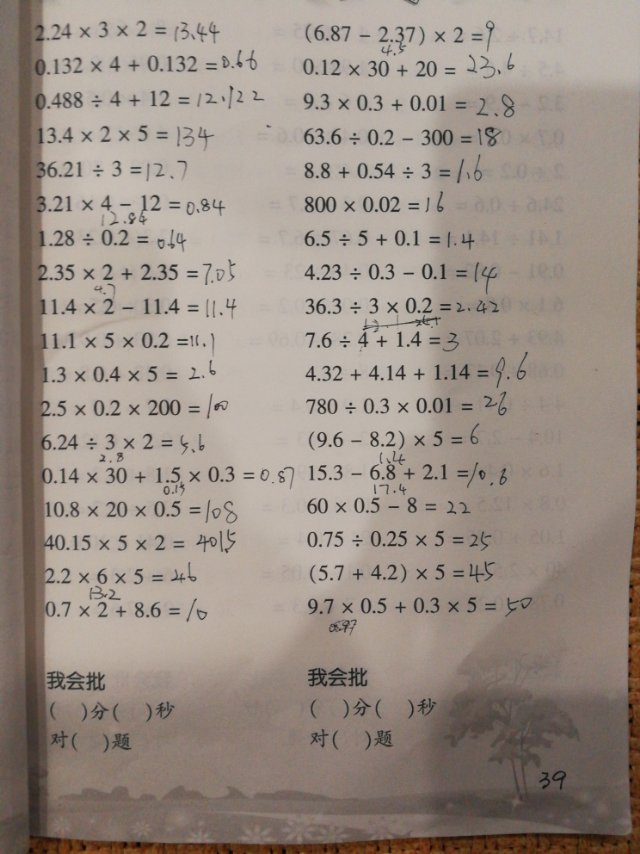 2.24 × 3 × 2 = 13.44
0.132 × 4 + 0.132 = 0.66
0.488 ÷ 4 + 12 = 12.122
13.4 × 2 × 5 = 134
36.21 ÷ 3 = 12.7
3.21 × 4 − 12 = 0.84
12.84
1.28 ÷ 0.2 = 0.64
2.35 × 2 + 2.35 = 7.05
4.7
11.4 × 2 − 11.4 = 11.4
11.1 × 5 × 0.2 = 11.1
1.3 × 0.4 × 5 = 2.6
2.5 × 0.2 × 200 = 100
6.24 ÷ 3 × 2 = 5.6
2.8
0.14 × 30 + 1.5 × 0.3 = 0.87
0.15
10.8 × 20 × 0.5 = 108
40.15 × 5 × 2 = 4015
2.2 × 6 × 5 = 26
13.2
0.7 × 2 + 8.6 = 10
我会批
( )分( )秒
对( )题
(6.87 − 2.37) × 2 = 9
4.5
0.12 × 30 + 20 = 23.6
9.3 × 0.3 + 0.01 = 2.8
63.6 ÷ 0.2 − 300 = 18
8.8 + 0.54 ÷ 3 = 1.6
800 × 0.02 = 16
6.5 ÷ 5 + 0.1 = 1.4
4.23 ÷ 0.3 − 0.1 = 14
36.3 ÷ 3 × 0.2 = 2.42
7.6 ÷ 4 + 1.4 = 3
4.32 + 4.14 + 1.14 = 9.6
780 ÷ 0.3 × 0.01 = 26
(9.6 − 8.2) × 5 = 6
1.4
15.3 − 6.8 + 2.1 = 10.6
17.4
60 × 0.5 − 8 = 22
0.75 ÷ 0.25 × 5 = 25
(5.7 + 4.2) × 5 = 45
9.7 × 0.5 + 0.3 × 5 = 50
我会批
( )分( )秒
对( )题
39